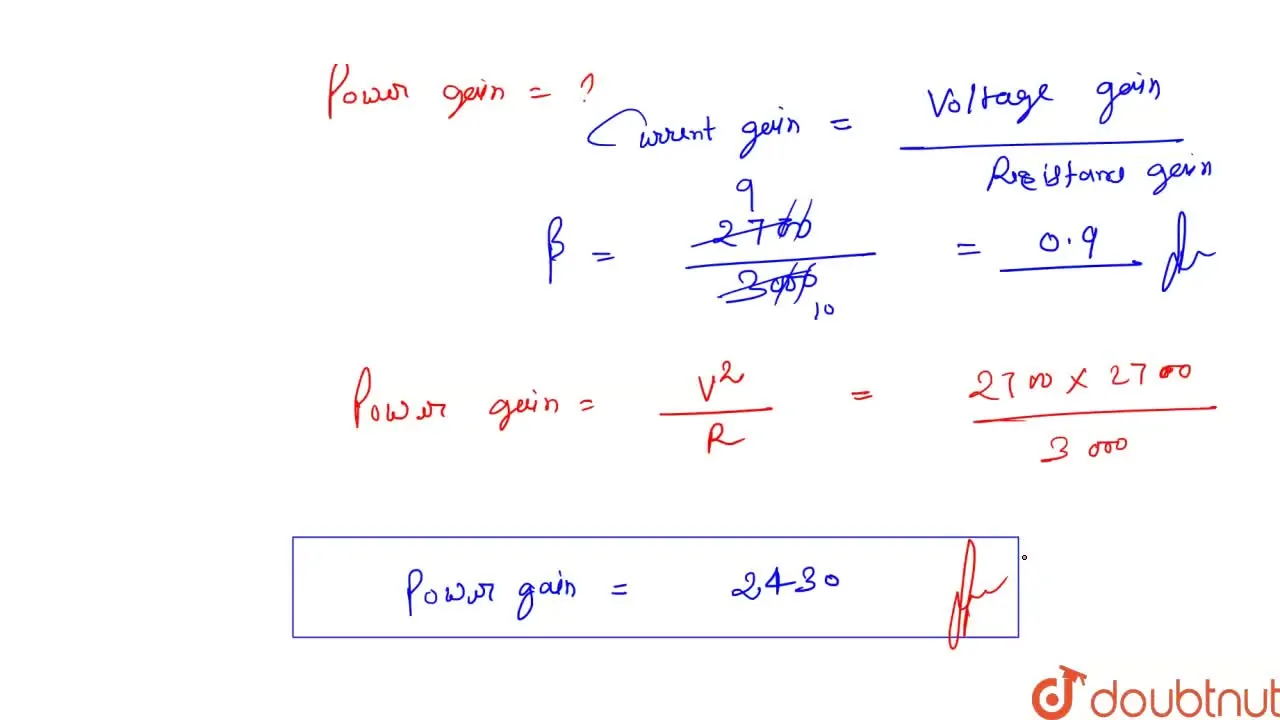 Power gain = ?
Current gain = Voltage gain / Resistance gain
9
β = 2700 / 3000 = 0.9
10
Power gain = V² / R = 2700 × 2700 / 3000
Power gain = 2430
doubtnut